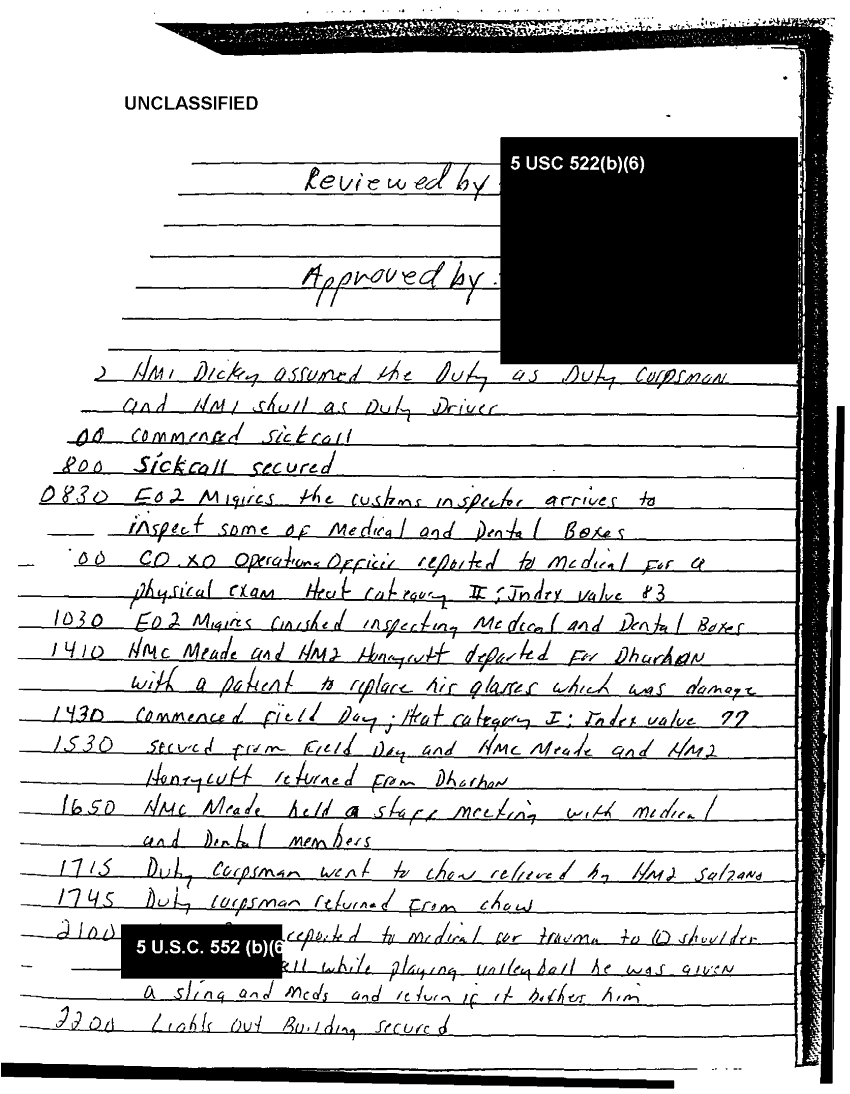 UNCLASSIFIED
5 USC 522(b)(6)
Reviewed by
Approved by
2 HM1 Dickey assumed the Duty as Duty Corpsman
and HM1 Shull as Duty Driver
00 commenced sickcall
800 Sickcall secured
0830 EO2 the customs inspector arrives to
inspect some of Medical and Dental Boxes
00 CO XO Operations Officer reported to medical for a
physical exam Heat category II; Index value 83
1030 EO2 finished inspecting Medical and Dental Boxes
1410 HMC Meade and HM2 Honeycutt departed for Dharhan
with a patient to replace his glasses which was damage
1430 Commenced Field Day; Heat category I; Index value 77
1530 secured from Field Day and HMC Meade and HM2
Honeycutt returned from Dharhan
1650 HMC Meade held a staff meeting with medical
and Dental members
1715 Duty Corpsman went to chow relieved by HM2 Salzano
1745 Duty corpsman returned from chow
2100 reported to medical for trauma to shoulder
5 U.S.C. 552 (b)(6
ell while playing volleyball he was given
a sling and meds and return if it bothers him
2200 Lights Out Building secured